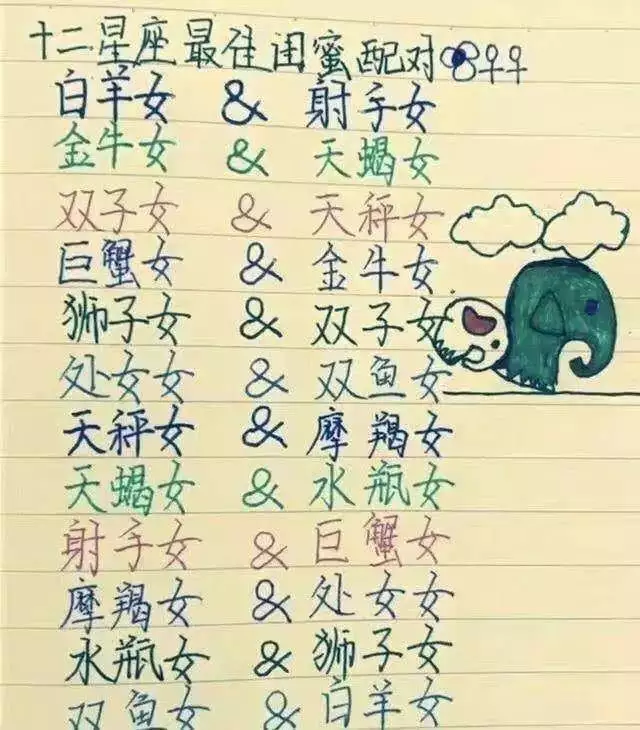 十二星座最佳闺蜜配对♀♀
白羊女 & 射手女
金牛女 & 天蝎女
双子女 & 天秤女
巨蟹女 & 金牛女
狮子女 & 双子女
处女女 & 双鱼女
天秤女 & 摩羯女
天蝎女 & 水瓶女
射手女 & 巨蟹女
摩羯女 & 处女女
水瓶女 & 狮子女
双鱼女 & 白羊女